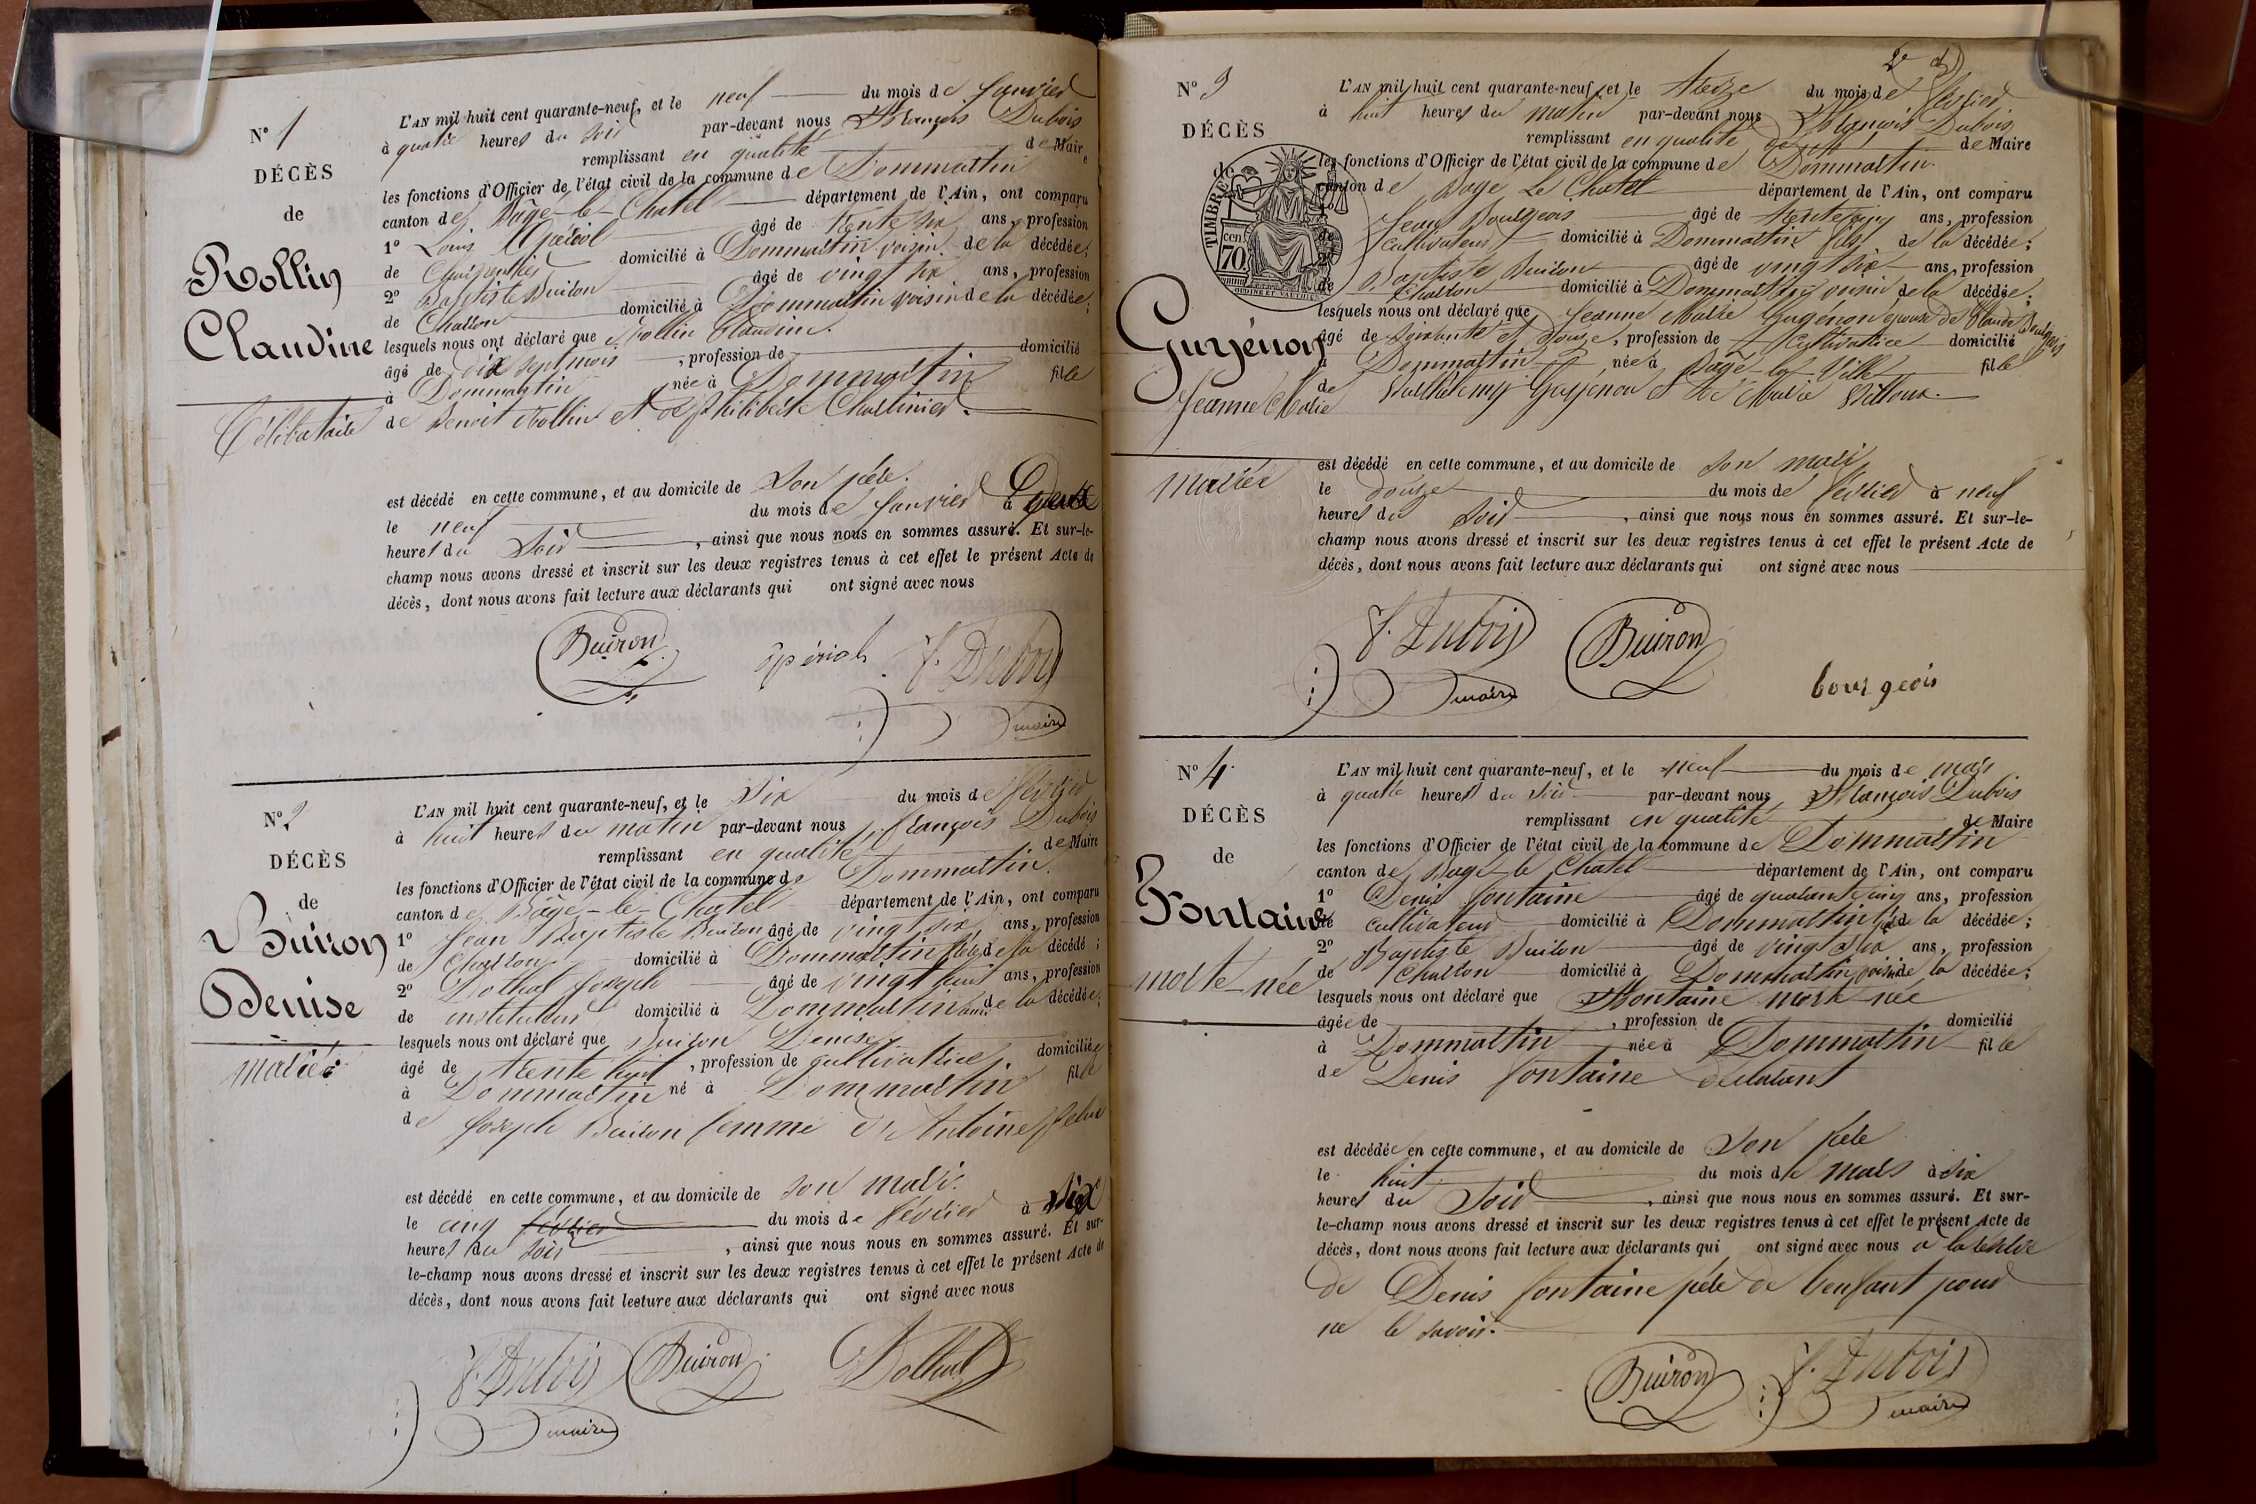 N° 1
DÉCÈS
de
Rollin
Claudine
Célibataire
L'AN mil huit cent quarante-neuf, et le neuf du mois de janvier
à quatre heures du soir par-devant nous François Dubois
remplissant en qualité de Maire
les fonctions d'Officier de l'état civil de la commune de Dommartin
canton de Bâgé-le-Chatel département de l'Ain, ont comparu
1° Louis âgé de trente six ans, profession
de Charpentier domicilié à Dommartin voisin de la décédée;
2° Baptiste Buiron âgé de vingt six ans, profession
de Charron domicilié à Dommartin voisin de la décédée;
lesquels nous ont déclaré que Rollin Claudine.
âgé de dix sept mois, profession de domicilié
à Dommartin née à Dommartin fille
de Benoit Rollin et de Philiberte
est décédé en cette commune, et au domicile de Son père.
le neuf du mois de janvier à
heures du Soir, ainsi que nous nous en sommes assuré. Et sur-le-
champ nous avons dressé et inscrit sur les deux registres tenus à cet effet le présent Acte de
décès, dont nous avons fait lecture aux déclarants qui ont signé avec nous
Buiron F. Dubois
maire
N° 2
DÉCÈS
de
Buiron
Denise
mariée
L'AN mil huit cent quarante-neuf, et le Six du mois de février
à huit heures du matin par-devant nous françois Dubois
remplissant en qualité de Maire
les fonctions d'Officier de l'état civil de la commune de Dommartin.
canton de Bâgé-le-Chatel département de l'Ain, ont comparu
1° Jean Baptiste Buiron âgé de vingt six ans, profession
de Charron domicilié à Dommartin frère de la décédé;
2° Dothal Joseph âgé de vingt huit ans, profession
de instituteur domicilié à Dommartin ami de la décédée;
lesquels nous ont déclaré que Buiron Denise
âgé de trente huit, profession de cultivatrice domiciliée
à Dommartin né à Dommartin fille
de Joseph Buiron femme d'Antoine
est décédé en cette commune, et au domicile de son mari.
le cinq février du mois de février à six
heures du soir, ainsi que nous nous en sommes assuré. Et sur-
le-champ nous avons dressé et inscrit sur les deux registres tenus à cet effet le présent Acte de
décès, dont nous avons fait lecture aux déclarants qui ont signé avec nous
F. Dubois Buiron Dothal
maire
N° 3
DÉCÈS
de
TIMBRE
70
Guyénon
Jeanne Marie
mariée
L'AN mil huit cent quarante-neuf, et le treize du mois de février
à huit heures du matin par-devant nous François Dubois
remplissant en qualité de Maire
les fonctions d'Officier de l'état civil de la commune de Dommartin.
canton de Bagé Le Chatel département de l'Ain, ont comparu
Jean Bourgeois âgé de trente cinq ans, profession
de cultivateur domicilié à Dommartin fils de la décédée;
2° Baptiste Buiron âgé de vingt six ans, profession
de Charron domicilié à Dommartin voisin de la décédée;
lesquels nous ont déclaré que Jeanne Marie Guyénon épouse de Claude Bourgeois
âgé de soixante et douze, profession de Cultivatrice domicilié
à Dommartin née à Bagé-la-Ville fille
de Barthélemy Guyénon et de Marie
est décédé en cette commune, et au domicile de son mari
le douze du mois de février à neuf
heures du soir, ainsi que nous nous en sommes assuré. Et sur-le-
champ nous avons dressé et inscrit sur les deux registres tenus à cet effet le présent Acte de
décès, dont nous avons fait lecture aux déclarants qui ont signé avec nous
F. Dubois Buiron
maire bourgeois
N° 4
DÉCÈS
de
Fontaine
morte-née
L'AN mil huit cent quarante-neuf, et le neuf du mois de mars
à quatre heures du soir par-devant nous François Dubois
remplissant en qualité de Maire
les fonctions d'Officier de l'état civil de la commune de Dommartin
canton de Bagé-le-Chatel département de l'Ain, ont comparu
1° Denis fontaine âgé de quarante cinq ans, profession
de cultivateur domicilié à Dommartin père de la décédée;
2° Baptiste Buiron âgé de vingt six ans, profession
de Charron domicilié à Dommartin voisin de la décédée;
lesquels nous ont déclaré que Fontaine morte-née
âgée de, profession de domicilié
à Dommartin née à Dommartin fille
de Denis fontaine déclarant
est décédée en cette commune, et au domicile de Son père
le huit du mois de mars à six
heures du Soir, ainsi que nous nous en sommes assuré. Et sur-
le-champ nous avons dressé et inscrit sur les deux registres tenus à cet effet le présent Acte de
décès, dont nous avons fait lecture aux déclarants qui ont signé avec nous à la réserve
de Denis fontaine père de l'enfant pour
ne le savoir.
Buiron F. Dubois
maire